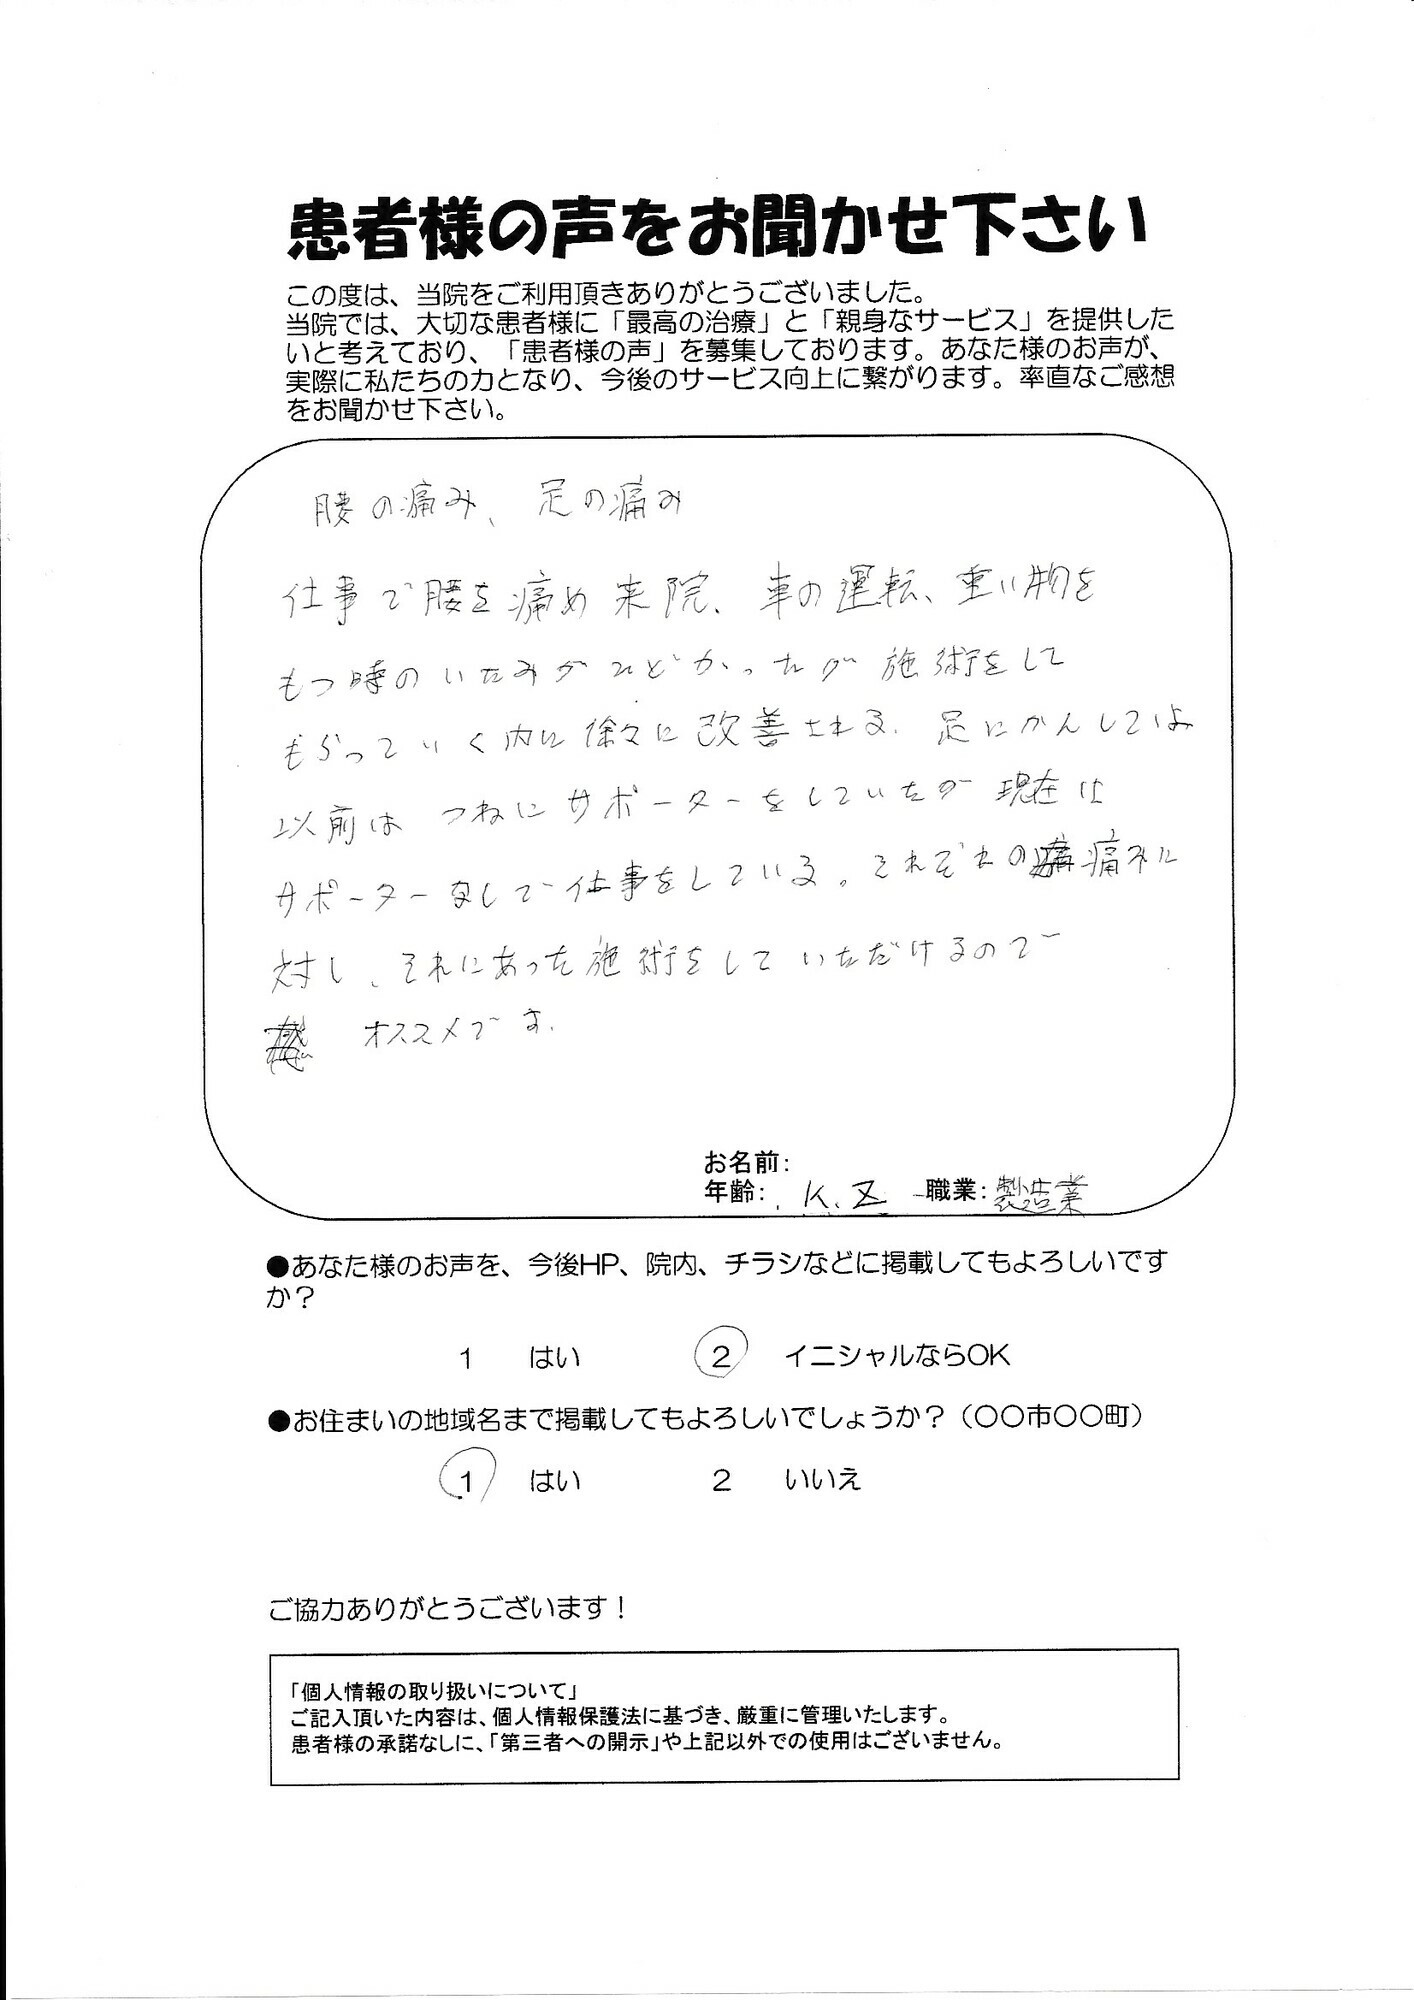 患者様の声をお聞かせ下さい
この度は、当院をご利用頂きありがとうございました。
当院では、大切な患者様に「最高の治療」と「親身なサービス」を提供した
いと考えており、「患者様の声」を募集しております。あなた様のお声が、
実際に私たちの力となり、今後のサービス向上に繋がります。率直なご感想
をお聞かせ下さい。
腰の痛み、足の痛み
仕事で腰を痛め来院、車の運転、重い物を
もつ時のいたみがひどかったが施術をして
もらっていく内に徐々に改善される。足にかんしては
以前はつねにサポーターをしていたが現在は
サポーターなしで仕事をしている。それぞれの痛みに
対し、それにあった施術をしていただけるので
オススメです。
お名前:
年齢: K.Z 職業: 製造業
●あなた様のお声を、今後HP、院内、チラシなどに掲載してもよろしいです
か？
1 はい 2 イニシャルならOK
●お住まいの地域名まで掲載してもよろしいでしょうか？（〇〇市〇〇町）
1 はい 2 いいえ
ご協力ありがとうございます！
「個人情報の取り扱いについて」
ご記入頂いた内容は、個人情報保護法に基づき、厳重に管理いたします。
患者様の承諾なしに、「第三者への開示」や上記以外での使用はございません。